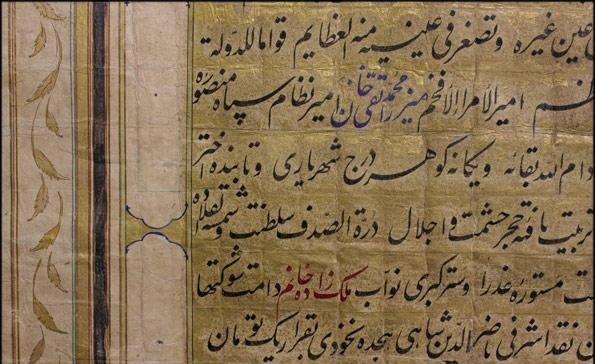 عین غیره و تصغر فی عینیه منه العظایم قواما للدولة
امیر الامرا الافخم میرزا محمد تقی خان امیر نظام سپاه منصوره
دام الله بقائه و یکانه کوهر درج شهریاری و تابنده اختر
تربیت یافته حجر حشمت و اجلال درة الصدف سلطنت و شمسة القلاده
مستوره عذرا و ستر کبری نواب ملک زاده خانم دامت شوکتها
نقد اشرفی ناصر الدین شاهی هجده نخودی بقرار یک تومان